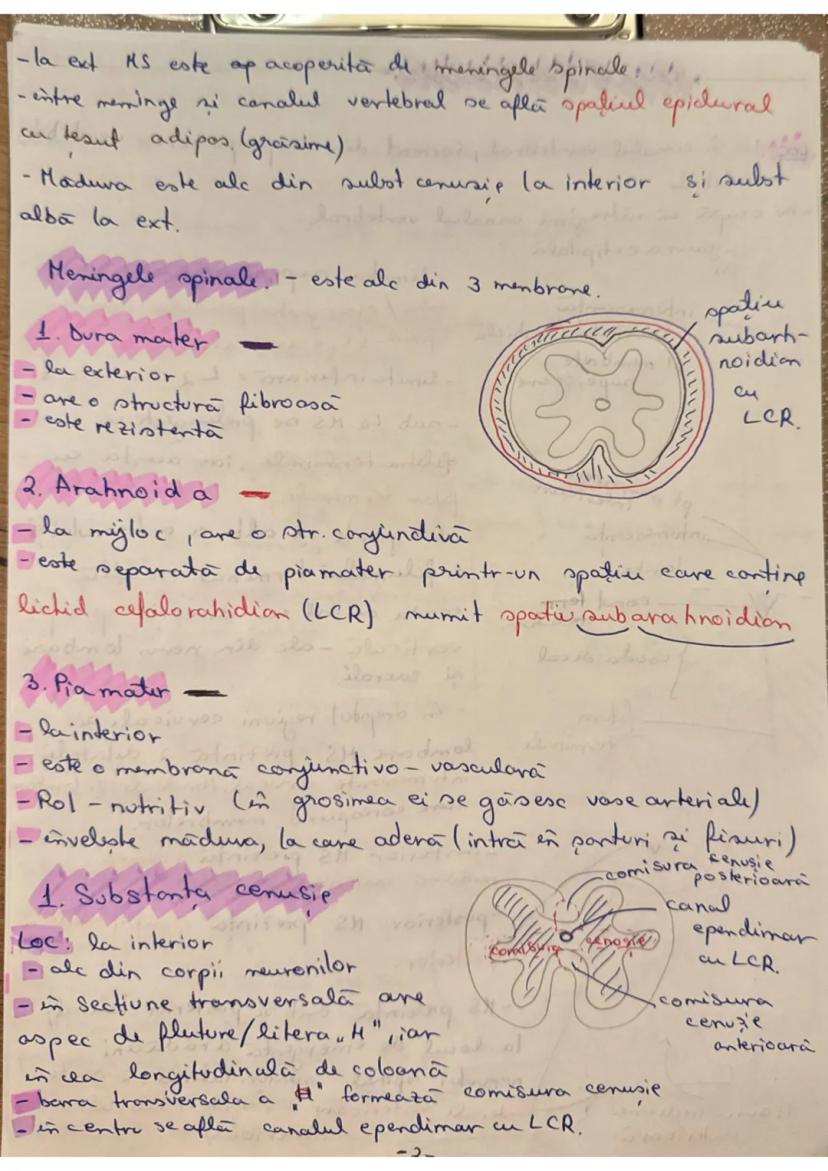 -la ext MS este ap acoperită de meningele spinale.
-între meninge și canalul vertebral se află spațiul epidural
cu țesut adipos (grăsime)
- Măduva este alc din subst cenușie la interior și subst
albă la ext.
Meningele spinale. - este alc din 3 menbrane.
spațiu
subarh-
noidian
cu
LCR.
1. Dura mater -
- la exterior
- are o structură fibroasă
- este rezistentă
2. Arahnoid a -
- la mijloc, are o str. conjunctivă
- este separată de piamater printr-un spațiu care conține
lichid cefalorahidian (LCR) numit spatiu subarahnoidian
3. Pia mater -
- la interior
- este o membrană conjunctivo-vasculară
- Rol - nutritiv (în grosimea ei se găsesc vase arteriale)
- învelește măduva, la care aderă (intră în șanturi și fisuri)
1. Substanța cenușie
comisura cenușie
posterioară
canal
ependimar
cu LCR.
comisura cenușie
comisura
cenușie
anterioară
Loc: la interior
- alc din corpii neuronilor
- în secțiune transversală are
aspec de fluture/litera „H", iar
în cea longitudinală de coloană
- barra transversala a „H" formează comisura cenușie
- în centru se află canalul ependimar cu LCR.
-2-